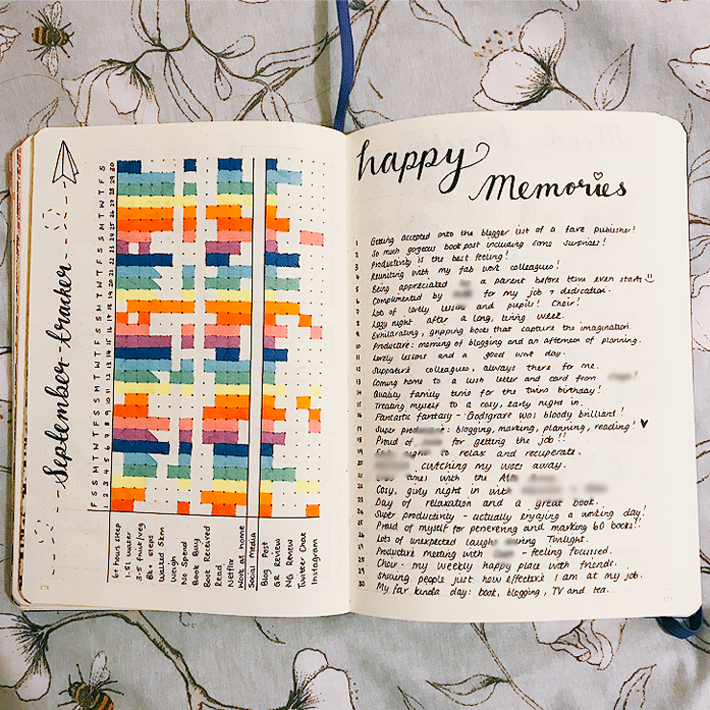 September tracker
F S S M T W T F S S M T W T F S S M T W T F S S M T W T F S
1 2 3 4 5 6 7 8 9 10 11 12 13 14 15 16 17 18 19 20 21 22 23 24 25 26 27 28 29 30
6+ hours sleep
1.5L water
3-5 fruit/veg
8k+ steps
Walked 5km
Weigh
No Spend
Book Buy
Book Received
Read
Netflix
Work at home
Social Media
Blog Post
GR Review
NG Review
Twitter Chat
Instagram
happy
Memories
1 Getting accepted onto the blogger list of a fave publisher!
2 So much gorgeous book post including some surprises!
3 Productivity is the best feeling!
4 Reuniting with my fab work colleagues!
5 Being appreciated a parent before term even starts
6 Complimented by for my job & dedication.
7 Lots of lovely lessons and pupils! Choir!
8 Lazy night after a long, tiring week.
9 Exhilarating, gripping books that capture the imagination.
10 Productive: morning of blogging and an afternoon of planning.
11 Lovely lessons and a good work day.
12 Supportive colleagues, always there for me.
13 Coming home to a lush letter and card from
14 Quality family time for the twins birthday!
15 Treating myself to a cosy, early night in.
16 Fantastic fantasy - Godsgrave was bloody brilliant!
17 Super productive: blogging, marking, planning, reading!
18 Proud of for getting the job!!
19 night to relax and recuperate.
20 cwtching my woes away.
21 times with the
22 Cosy, girly night in with
23 Day of relaxation and a great book.
24 Super productivity - actually enjoying a working day!
25 Proud of myself for persevering and marking 60 books!!
26 Lots of unexpected laughs during Twilight.
27 Productive meeting with - feeling focussed.
28 Choir - my weekly happy place with friends.
29 Showing people just how effective I am at my job.
30 My fav kinda day: book, blogging, TV and tea.